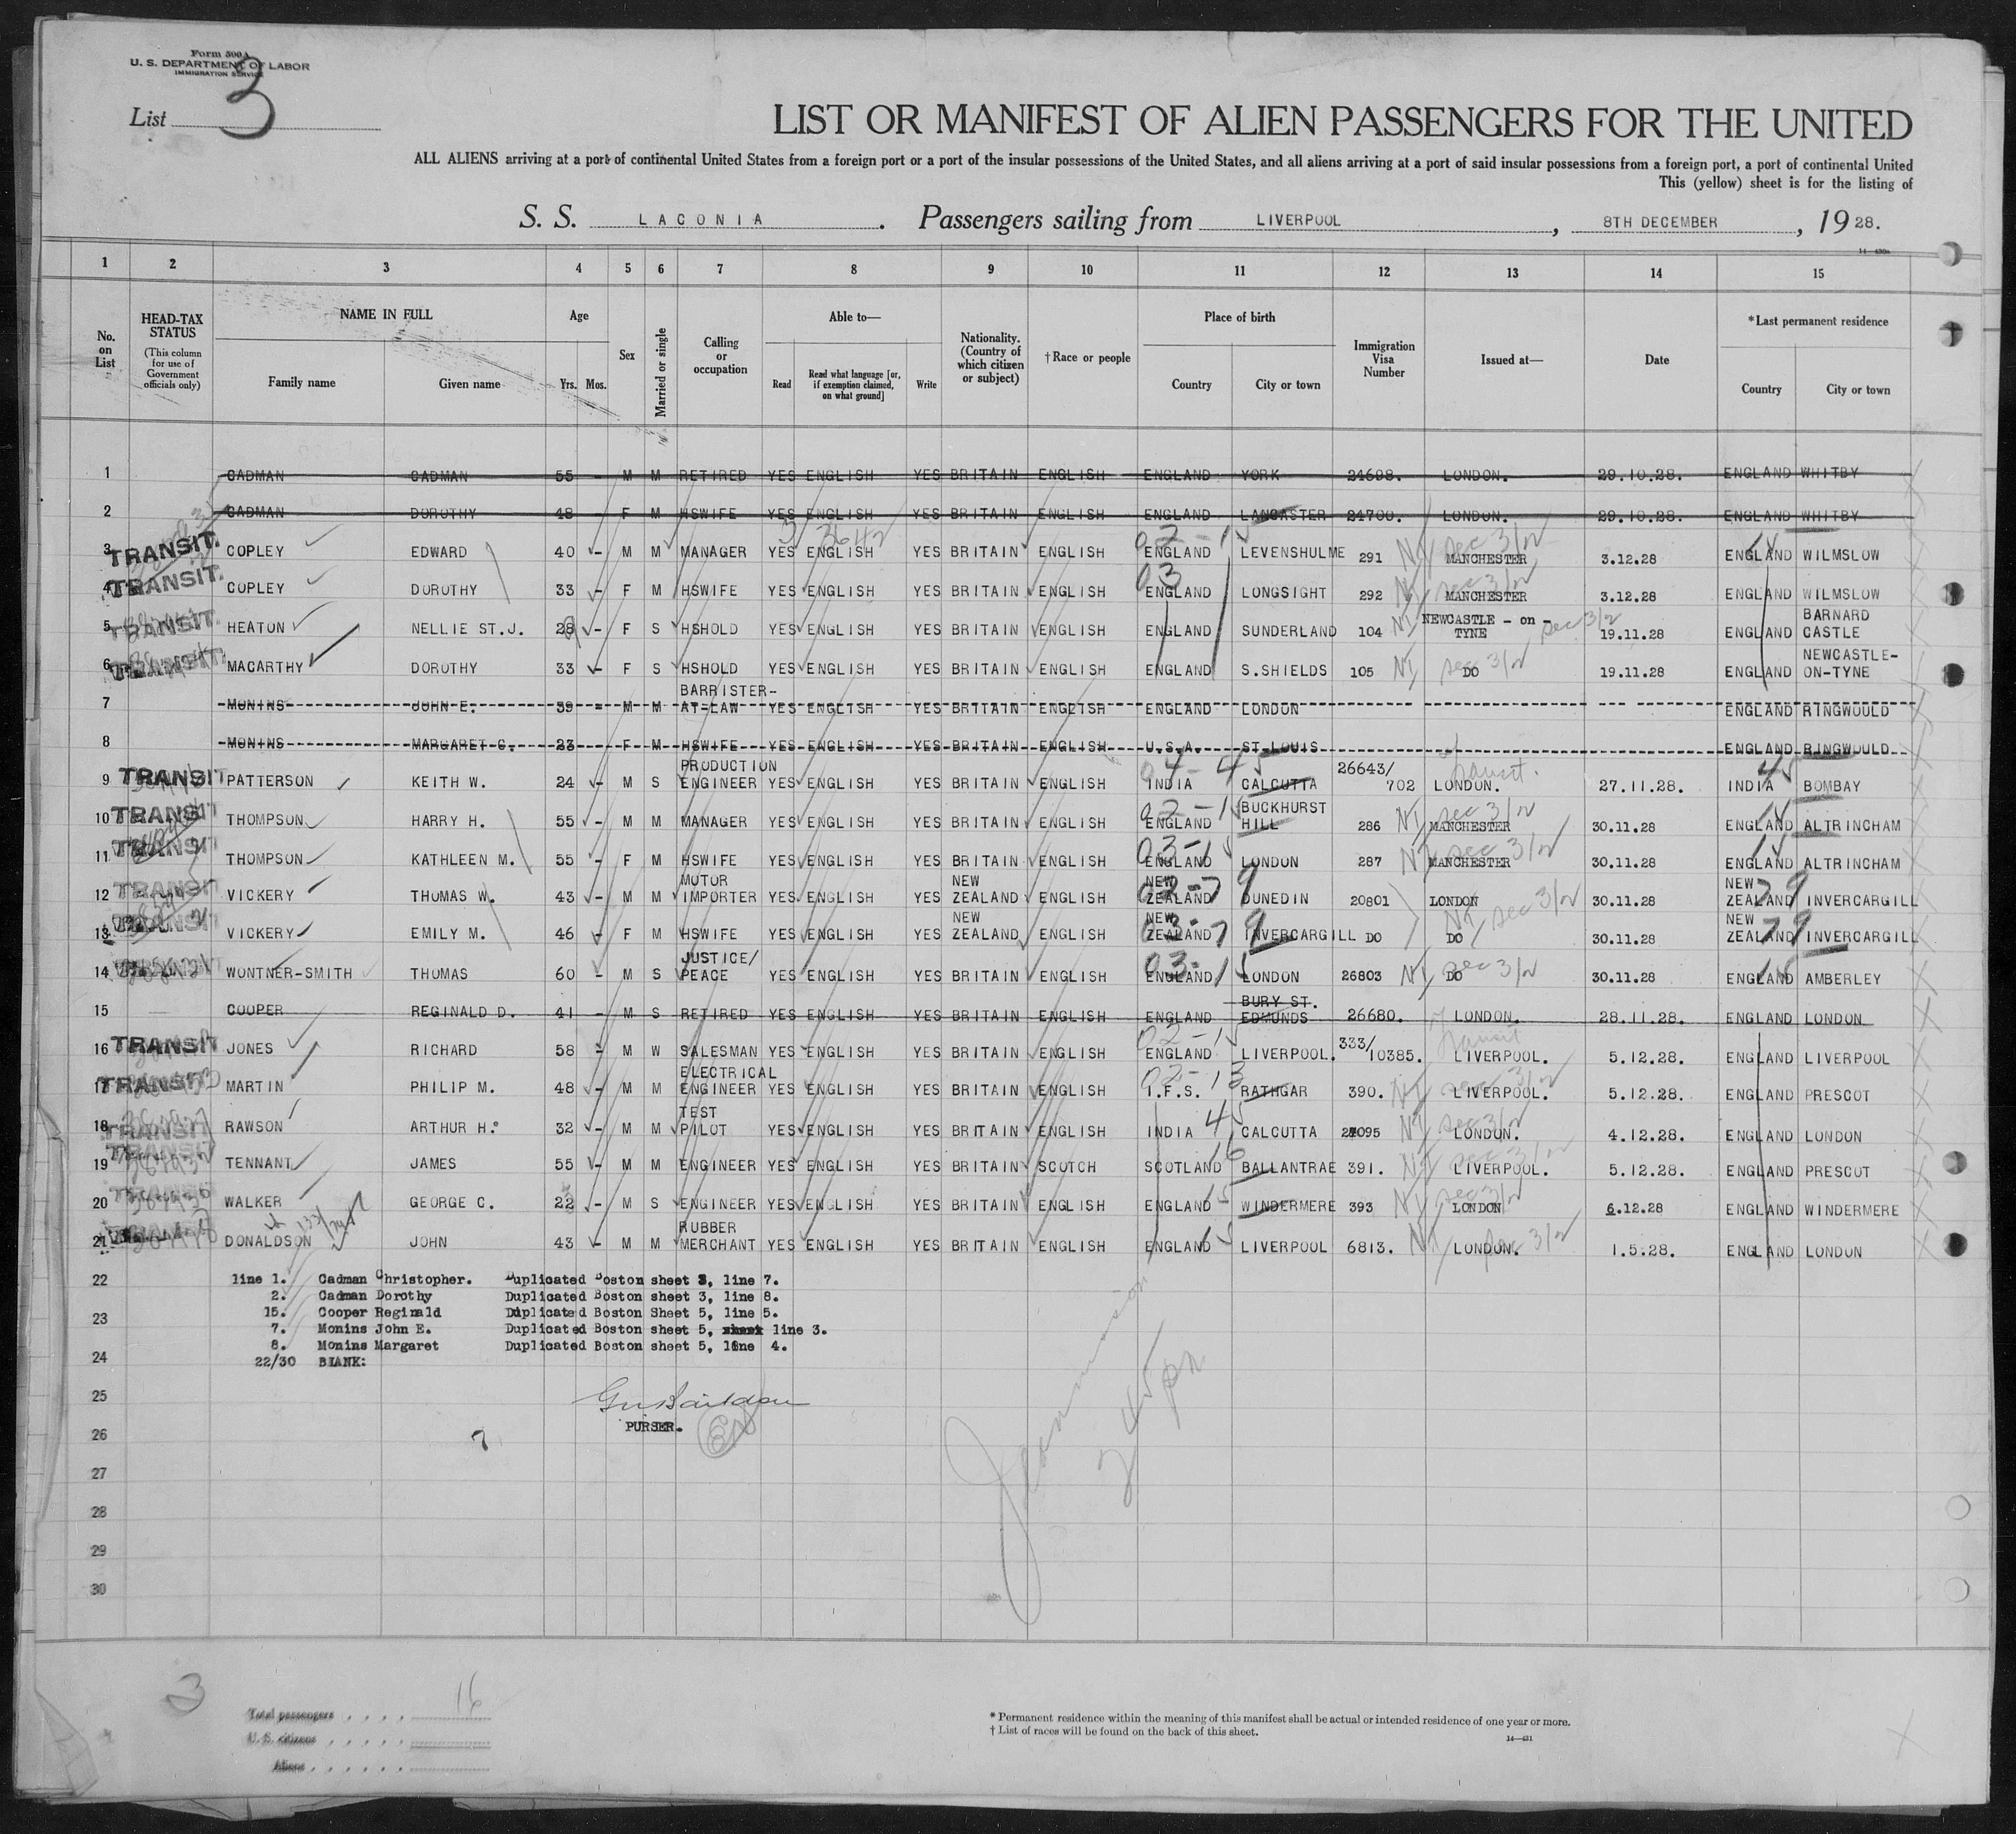 Form 500A
U. S. DEPARTMENT OF LABOR
IMMIGRATION SERVICE
List 3
LIST OR MANIFEST OF ALIEN PASSENGERS FOR THE UNITED
ALL ALIENS arriving at a port of continental United States from a foreign port or a port of the insular possessions of the United States, and all aliens arriving at a port of said insular possessions from a foreign port, a port of continental United
This (yellow) sheet is for the listing of
S. S. LACONIA. Passengers sailing from LIVERPOOL, 8TH DECEMBER, 1928.
1 2 3 4 5 6 7 8 9 10 11 12 13 14 15
No. on List
HEAD-TAX STATUS (This column for use of Government officials only)
NAME IN FULL Family name Given name
Age Yrs. Mos.
Sex
Married or single
Calling or occupation
Able to— Read Read what language [or, if exemption claimed, on what ground] Write
Nationality. (Country of which citizen or subject)
†Race or people
Place of birth Country City or town
Immigration Visa Number
Issued at—
Date
*Last permanent residence Country City or town
1 CADMAN CADMAN 55 - M M RETIRED YES ENGLISH YES BRITAIN ENGLISH ENGLAND YORK 24698. LONDON. 29.10.28. ENGLAND WHITBY
2 CADMAN DOROTHY 48 - F M HSWIFE YES ENGLISH YES BRITAIN ENGLISH ENGLAND LANCASTER 24700. LONDON. 29.10.28. ENGLAND WHITBY
3 TRANSIT. COPLEY EDWARD 40 - M M MANAGER YES ENGLISH YES BRITAIN ENGLISH ENGLAND LEVENSHULME 291 MANCHESTER 3.12.28 ENGLAND WILMSLOW
4 TRANSIT. COPLEY DOROTHY 33 - F M HSWIFE YES ENGLISH YES BRITAIN ENGLISH ENGLAND LONGSIGHT 292 MANCHESTER 3.12.28 ENGLAND WILMSLOW
5 TRANSIT. HEATON NELLIE ST.J. 28 - F S HSHOLD YES ENGLISH YES BRITAIN ENGLISH ENGLAND SUNDERLAND 104 NEWCASTLE - on - TYNE 19.11.28 ENGLAND BARNARD CASTLE
6 TRANSIT. MACARTHY DOROTHY 33 - F S HSHOLD YES ENGLISH YES BRITAIN ENGLISH ENGLAND S.SHIELDS 105 DO 19.11.28 ENGLAND NEWCASTLE-ON-TYNE
7 MONINS JOHN E. 39 - M M BARRISTER-AT-LAW YES ENGLISH YES BRITAIN ENGLISH ENGLAND LONDON ENGLAND RINGWOULD
8 MONINS MARGARET C. 23 - F M HSWIFE YES ENGLISH YES BRITAIN ENGLISH U.S.A. ST.LOUIS ENGLAND RINGWOULD
9 TRANSIT PATTERSON KEITH W. 24 - M S PRODUCTION ENGINEER YES ENGLISH YES BRITAIN ENGLISH INDIA CALCUTTA 26643/702 LONDON. 27.11.28. INDIA BOMBAY
10 TRANSIT THOMPSON HARRY H. 55 - M M MANAGER YES ENGLISH YES BRITAIN ENGLISH ENGLAND BUCKHURST HILL 286 MANCHESTER 30.11.28 ENGLAND ALTRINCHAM
11 TRANSIT THOMPSON KATHLEEN M. 55 - F M HSWIFE YES ENGLISH YES BRITAIN ENGLISH ENGLAND LONDON 287 MANCHESTER 30.11.28 ENGLAND ALTRINCHAM
12 TRANSIT VICKERY THOMAS W. 43 - M M MOTOR IMPORTER YES ENGLISH YES NEW ZEALAND ENGLISH NEW ZEALAND DUNEDIN 20801 LONDON 30.11.28 NEW ZEALAND INVERCARGILL
13 TRANSIT VICKERY EMILY M. 46 F M HSWIFE YES ENGLISH YES NEW ZEALAND ENGLISH NEW ZEALAND INVERCARGILL DO DO 30.11.28 NEW ZEALAND INVERCARGILL
14 WONTNER-SMITH THOMAS 60 - M S JUSTICE/PEACE YES ENGLISH YES BRITAIN ENGLISH ENGLAND LONDON 26803 DO 30.11.28 ENGLAND AMBERLEY
15 COOPER REGINALD D. 41 - M S RETIRED YES ENGLISH YES BRITAIN ENGLISH ENGLAND BURY ST. EDMUNDS 26680. LONDON. 28.11.28. ENGLAND LONDON
16 TRANSIT JONES RICHARD 58 - M W SALESMAN YES ENGLISH YES BRITAIN ENGLISH ENGLAND LIVERPOOL. 333/10385. LIVERPOOL. 5.12.28. ENGLAND LIVERPOOL
17 TRANSIT MARTIN PHILIP M. 48 - M M ELECTRICAL ENGINEER YES ENGLISH YES BRITAIN ENGLISH I.F.S. RATHGAR 390. LIVERPOOL. 5.12.28. ENGLAND PRESCOT
18 TRANSIT RAWSON ARTHUR H. 32 - M M TEST PILOT YES ENGLISH YES BRITAIN ENGLISH INDIA CALCUTTA 27095 LONDON. 4.12.28. ENGLAND LONDON
19 TRANSIT TENNANT JAMES 55 - M M ENGINEER YES ENGLISH YES BRITAIN SCOTCH SCOTLAND BALLANTRAE 391. LIVERPOOL. 5.12.28. ENGLAND PRESCOT
20 TRANSIT WALKER GEORGE C. 22 - M S ENGINEER YES ENGLISH YES BRITAIN ENGLISH ENGLAND WINDERMERE 393 LONDON 6.12.28 ENGLAND WINDERMERE
21 DONALDSON JOHN 43 - M M RUBBER MERCHANT YES ENGLISH YES BRITAIN ENGLISH ENGLAND LIVERPOOL 6813. LONDON. 1.5.28. ENGLAND LONDON
22 line 1. Cadman Christopher. Duplicated Boston sheet 3, line 7.
2. Cadman Dorothy Duplicated Boston sheet 3, line 8.
23 15. Cooper Reginald Duplicated Boston Sheet 5, line 5.
7. Monins John E. Duplicated Boston sheet 5, line 3.
8. Monins Margaret Duplicated Boston sheet 5, line 4.
24 22/30 BLANK:
25
PURSER.
26
27
28
29
30
3
Total passengers . . . . 16
U.S. citizens . . . . .
Aliens . . . . . .
* Permanent residence within the meaning of this manifest shall be actual or intended residence of one year or more.
† List of races will be found on the back of this sheet.